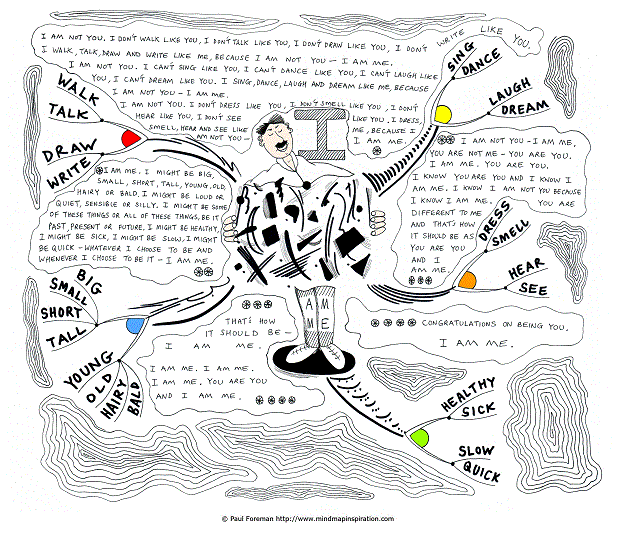 I AM NOT YOU. I DON'T WALK LIKE YOU, I DON'T TALK LIKE YOU, I DON'T DRAW LIKE YOU, I DON'T WRITE LIKE YOU.
I WALK, TALK, DRAW AND WRITE LIKE ME, BECAUSE I AM NOT YOU - I AM ME.
I AM NOT YOU. I CAN'T SING LIKE YOU, I CAN'T DANCE LIKE YOU, I CAN'T LAUGH LIKE
YOU, I CAN'T DREAM LIKE YOU. I SING, DANCE, LAUGH AND DREAM LIKE ME, BECAUSE
I AM NOT YOU - I AM ME.
I AM NOT YOU. I DON'T DRESS LIKE YOU, I DON'T SMELL LIKE YOU, I DON'T
HEAR LIKE YOU, I DON'T SEE LIKE YOU. I DRESS,
SMELL, HEAR AND SEE LIKE ME, BECAUSE I
AM NOT YOU - I AM ME.
WALK
TALK
DRAW
WRITE
SING
DANCE
LAUGH
DREAM
I
I AM NOT YOU - I AM ME.
YOU ARE NOT ME - YOU ARE YOU.
I AM ME. YOU ARE YOU.
I KNOW YOU ARE YOU AND I KNOW I
AM ME. I KNOW I AM NOT YOU BECAUSE
I KNOW I AM ME. YOU ARE
DIFFERENT TO ME
AND THAT'S HOW
IT SHOULD BE AS
YOU ARE YOU
AND I
AM ME.
I AM ME. I MIGHT BE BIG,
SMALL, SHORT, TALL, YOUNG, OLD
HAIRY OR BALD. I MIGHT BE LOUD OR
QUIET, SENSIBLE OR SILLY. I MIGHT BE SOME
OF THESE THINGS OR ALL OF THESE THINGS, BE IT
PAST, PRESENT OR FUTURE. I MIGHT BE HEALTHY,
I MIGHT BE SICK, I MIGHT BE SLOW, I MIGHT
BE QUICK - WHATEVER I CHOOSE TO BE AND
WHENEVER I CHOOSE TO BE IT - I AM ME.
DRESS
SMELL
HEAR
SEE
BIG
SMALL
SHORT
TALL
YOUNG
OLD
HAIRY
BALD
AM
ME
THAT'S HOW
IT SHOULD BE -
I AM ME.
I AM ME. I AM ME.
I AM ME. YOU ARE YOU
AND I AM ME.
CONGRATULATIONS ON BEING YOU.
I AM ME.
HEALTHY
SICK
SLOW
QUICK
© Paul Foreman http://www.mindmapinspiration.com